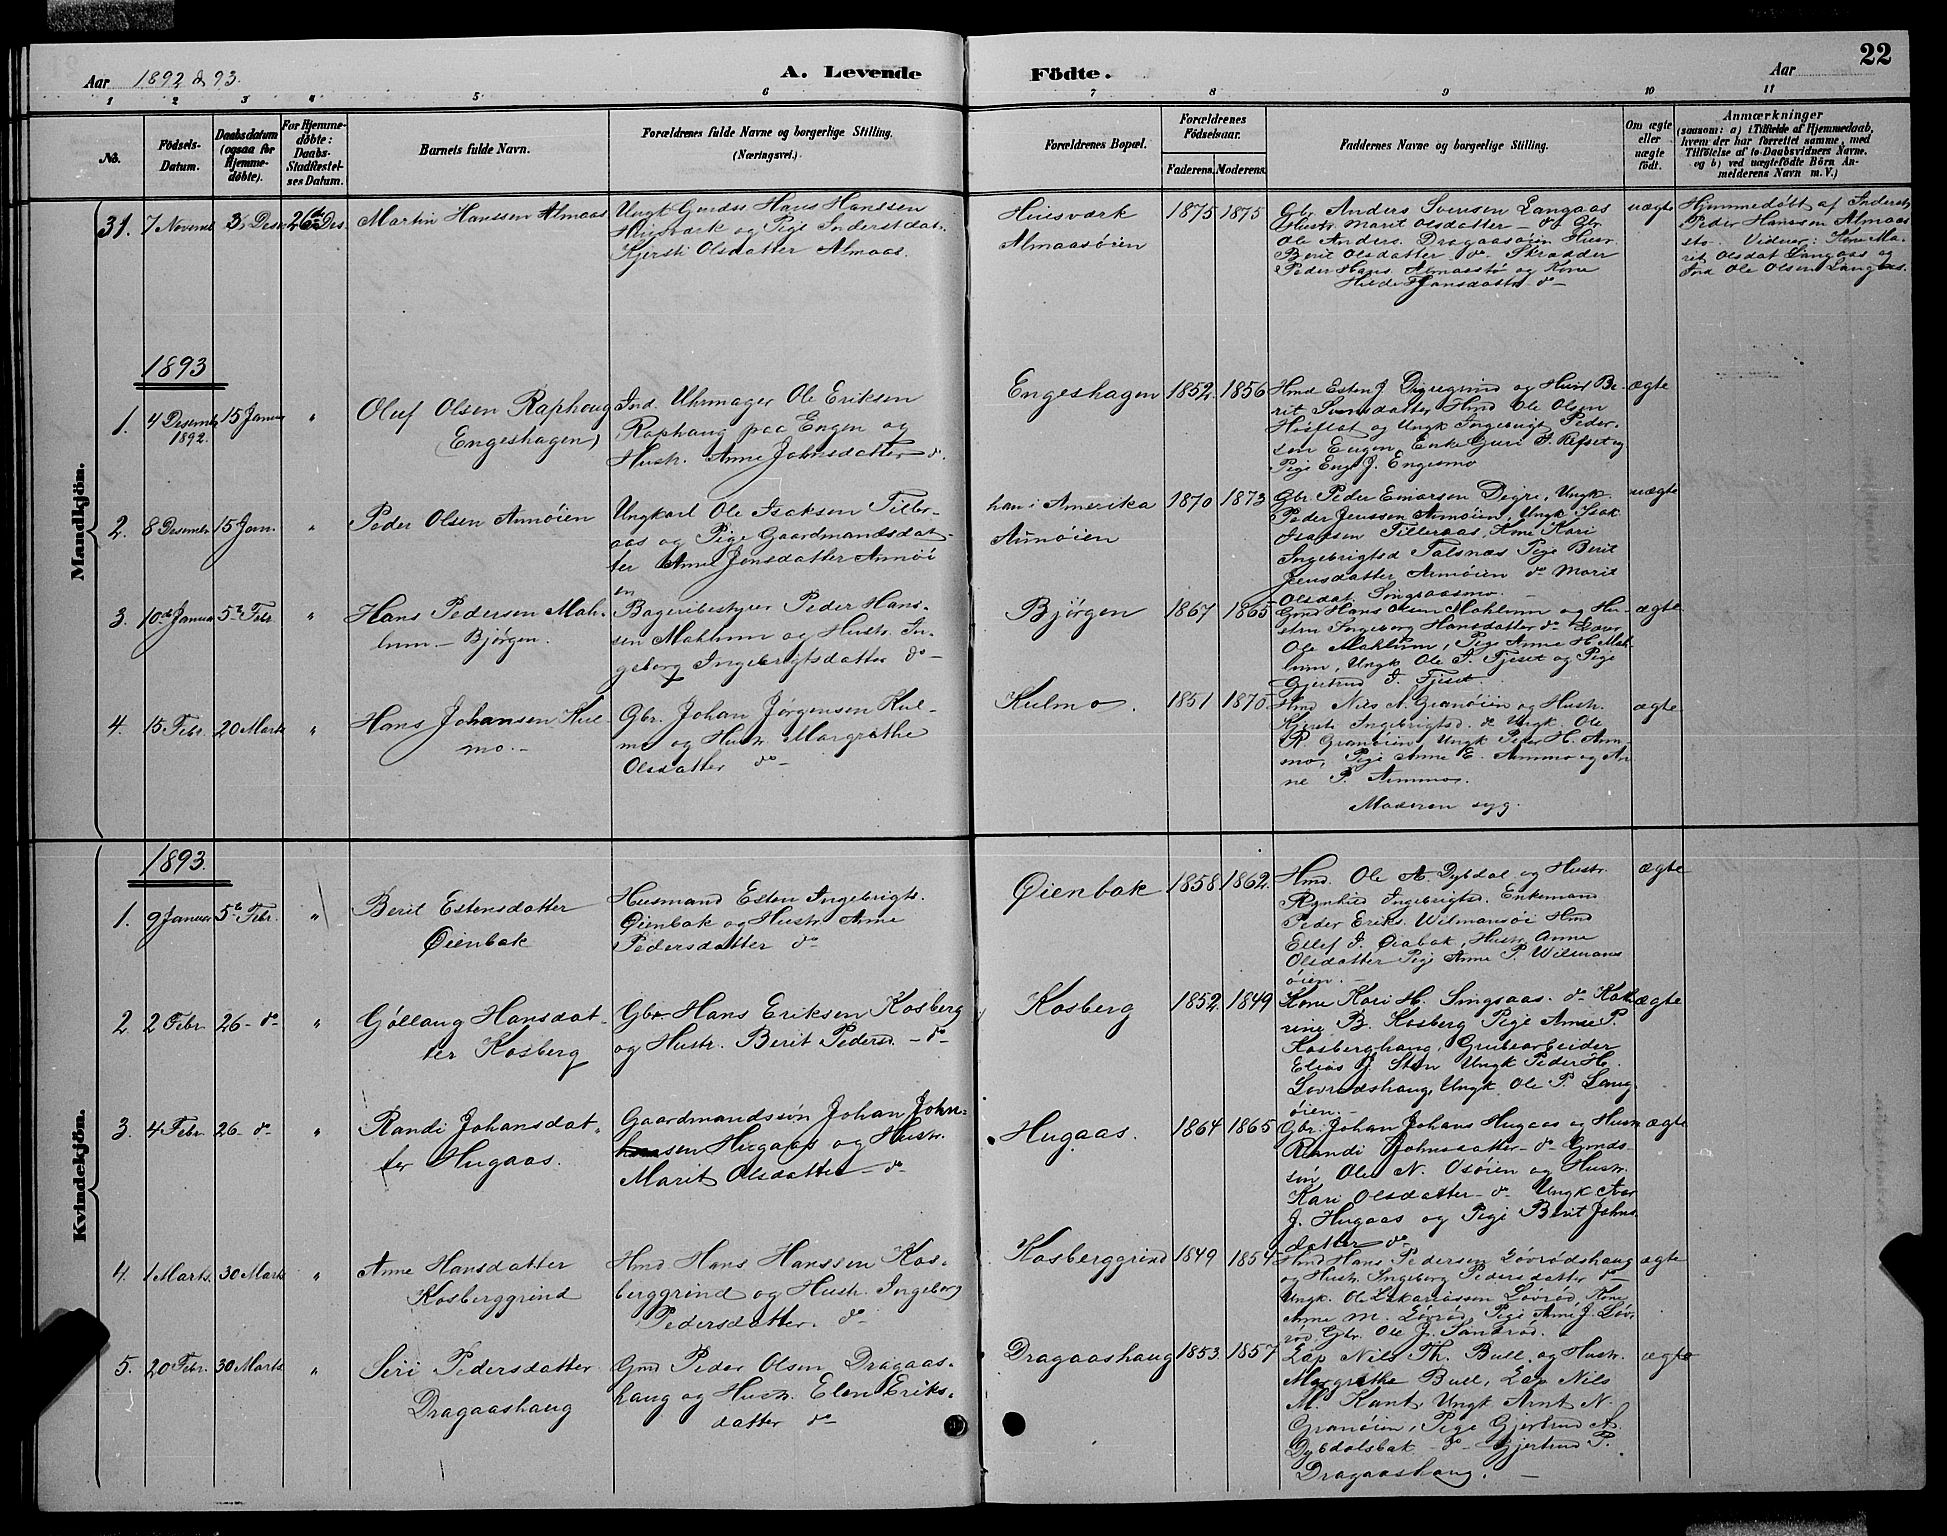 22
Aar 1892 & 93.
A. Levende Fødte.
Aar
1 2 3 4 5 6 7 8 9 10 11
No.
Födsels-Datum.
Daabsdatum (ogsaa for Hjemme-döbte).
For Hjemme-döbte: Daabs-Stadfæstel-ses Datum.
Barnets fulde Navn.
Forældrenes fulde Navne og borgerlige Stilling. (Næringsvei.)
Forældrenes Bopæl.
Forældrenes Födselsaar.
Faderens. Moderens.
Faddernes Navne og borgerlige Stilling.
Om ægte eller uægte födt.
Anmærkninger
(saasom: a) i Tilfælde af Hjemmedaab, hvem der har forrettet samme, med Tilföielse af to Daabsvidners Navne, og b) ved uægtefödte Börn An-melderens Navn m. V.)
Mandkjön.
31. 7 Novemb 3 Desem 26de Des.
Martin Hanssen Almaas
Ungk Gmdss Hans Hanssen
Huusværk og Pige Inderstdat.
Kjersti Olsdatter Almaas.
Huusværk
Almaasøien
1875 1875
Gbr Anders Svensen Langaas
Hustr Marit Olsdatter do Gbr
Ole Anders. Dragaasøien Hustr
Berit Olsdatter do Skrædder
Peder Hans. Almaasstø og Kone
Hansdatter do
uægte
Hjemmedøbt af Inderst
Peder Hanssen Almaas
stø. Vidner: Kone Ma-
rit Olsdat Langaas og
Ind Ole Olsen Langaas.
1893
1. 4 Desemb 1892. 15 Januar "
Oluf Olsen Raphaug
(Engeshagen)
Ind. Uhrmager Ole Eriksen
Raphaug paa Engen og
Hustr. Anne Johnsdatter do.
Engeshagen
1852 1856
Hmd Esten J. Digregrind og Hustr Be-
rit Svensdatter, Hmd Ole Olsen
Hosflot og Ungk Ingebrigt Peder-
sen Engen, Enke Guri J. Refset og
Pige Eng. J. Engesmo
ægte
2. 8 Desembr 15 Jan. "
Peder Olsen Aunøien
Ungkarl Ole Isaksen Tiller-
aas og Pige Gaardmandsdat-
ter Anne Jensdatter Aunøi
en
han i Amerika
Aunøien
1870 1873
Gbr. Peder Einarsen Digre, Ungk
Peder Jenssen Aunøien, Ungk Isak
Isaksen Tilleraas, Kone Kari
Ingebrigtsd Talsnæs Pige Berit
Jensdatter Aunøien do Marit
Olsdat. Singsaasmo.
uægte
3. 10de Januar 5te Febr. "
Hans Pedersen Mah-
lum - Bjørgen.
Bageribestyrer Peder Hans-
sen Mahlum og Hustr. In-
geborg Ingebrigtsdatter do
Bjørgen
1867 1865
Gmd Hans Olsen Mahlum og Hu-
stru Ingeborg Hansdatter do
Ole Mahlum, Pige Anne H. Mah-
lum, Ungk Ole I. Fjeset og Pige
Gjertrud I. Fjeset
ægte
4. 15 Febr. 20 Marts "
Hans Johansen Kul-
mo.
Gbr. Johan Jørgensen Kul-
mo og Hustr Margrethe
Olsdatter do
Kulmo.
1851 1870
Hmd Nils N. Granøien og Hustr.
Kjersti Ingebrigtsd. do Ungk. Ole
R. Granøien Ungk Peder H. Aun-
mo, Pige Anne E. Aunmo og An-
ne P. Aunmo.
Moderen syg.
ægte
Kvindekjön.
1893.
1. 9 Januar 5te Febr. "
Berit Estensdatter
Øienbak
Husmand Esten Ingebrigts.
Øienbak og Hustr. Anne
Pedersdatter do
Øienbak
1858 1862
Hmd. Ole A. Dybdal og Hustr.
Ragnhild Ingebrigtsd. Enkemand
Peder Eriks. Wilmansøi Hmd
Ellef I. Øiabak, Hustr Anne
Olsdatter Pige Anne P. Wilmans
øien.
ægte
2 2 Febr. 26 - do "
Gøllaug Hansdat-
ter Kosberg
Gbr Hans Eriksen Kosberg
og Hustr. Berit Pedersd. - do
Kosberg
1852 1849
Kone Kari H. Singsaas. do Kath
rine B. Kosberg Pige Anne P.
Kosberghaug, Grubearbeider
Elias J. Sten Ungk Peder H.
Lovrødshaug, Ungk Ole P. Laug-
øien.
ægte
3. 4 Febr. 26 - do "
Randi Johansdat-
ter Hugaas.
Gaardmandssøn Johan John-
sen Hugaas og Hustr
Marit Olsdatter do
Hugaas.
1864 1865
Gbr. Johan Johans Hugaas og Hustr
Randi Johnsdatter - do Gmds-
søn Ole N. Osøien og Hustr.
Kari Olsdatter - do Ungk
J. Hugaas og Pige Berit Johns
datter do
ægte
4. 1 Marts. 30 Marts "
Anne Hansdatter
Kosberggrind
Hmd Hans Hanssen Kos-
berggrind og Hustr. Ingeborg
Pedersdatter. do
Kosberggrind
1849 1854
Hmd Hans Pedersen Løvrødshaug
og Hustr. Ingeborg Pedersdatter do
Ungk. Ole Zakariassen Løvrød, Kone
Anne M. Løvrød, Pige Anne J. Løv-
rød, Gbr. Ole J. Sandrød.
ægte
5. 20 Febr. 30 Marts "
Siri Pedersdatter
Dragaashaug
Gmd Peder Olsen Dragaas-
haug og Hustr. Elen Eriks-
datter do
Dragaashaug
1853. 1857
Lap Nils Th. Bull. og Hustr.
Margrethe Bull, Lap Nils
M. Kant, Ungk Arnt N.
Granøien, Pige Gjertrud A.
Dybdalsbak - do - Gjertrud P.
Dragaashaug.
ægte